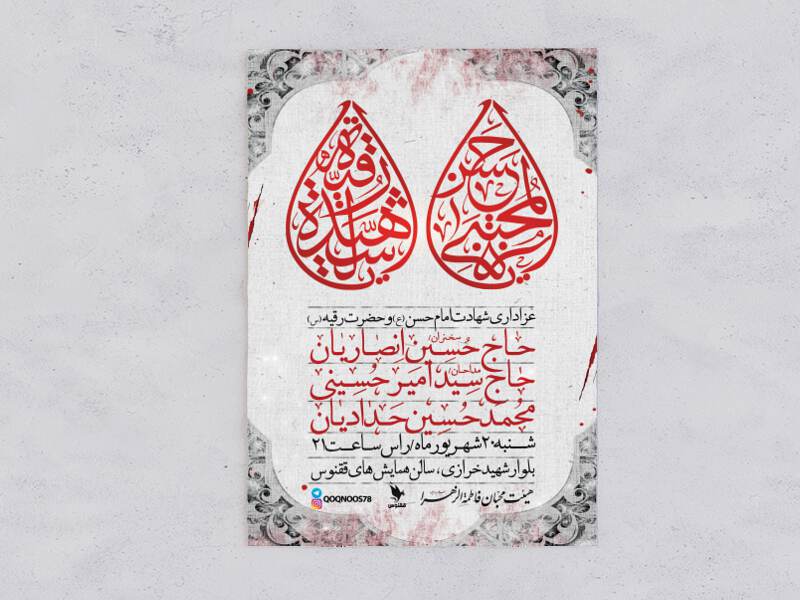 یا حسن المجتبی
یا سیدة رقیة
عزاداری شهادت امام حسن (ع) و حضرت رقیه (س)
سخنران:
حاج حسین انصاریان
مداحان:
حاج سید امیر حسینی
محمد حسین حدادیان
شنبه ۲۰ شهریور ماه/ راس ساعت ۲۱
بلوار شهید خرازی، سالن همایش های ققنوس
هیئت محبان فاطمة الزهرا
ققنوس
QOQNOOS78